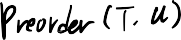 Preorder (T, u)